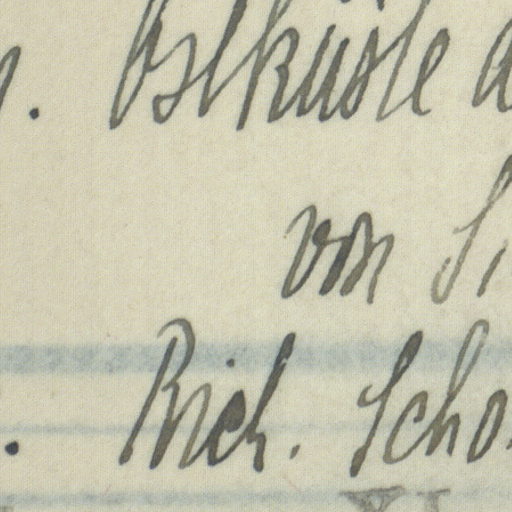 Ostküste
von
Rich. Scho
XI